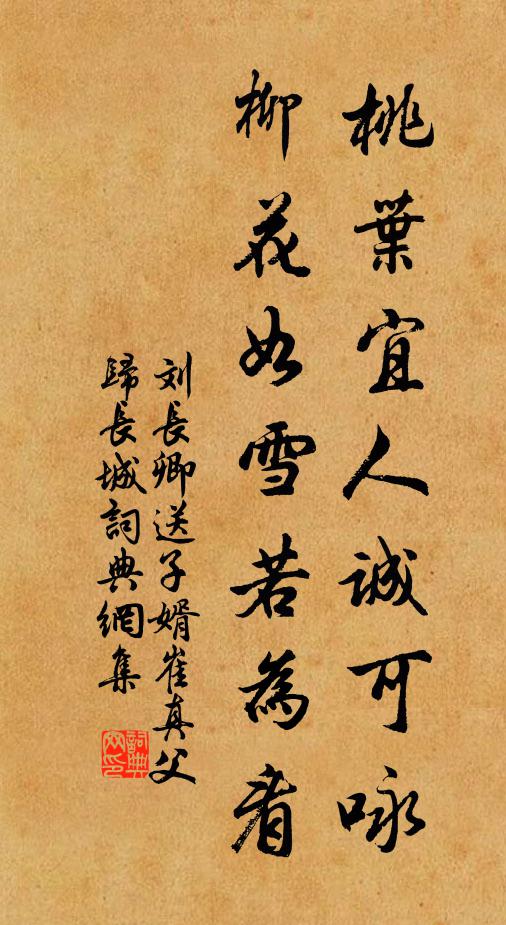 桃葉宜人誠可咏
柳花如雪若為看
刘長卿送子婿崔真父
歸長城詞典網集
詞典網印